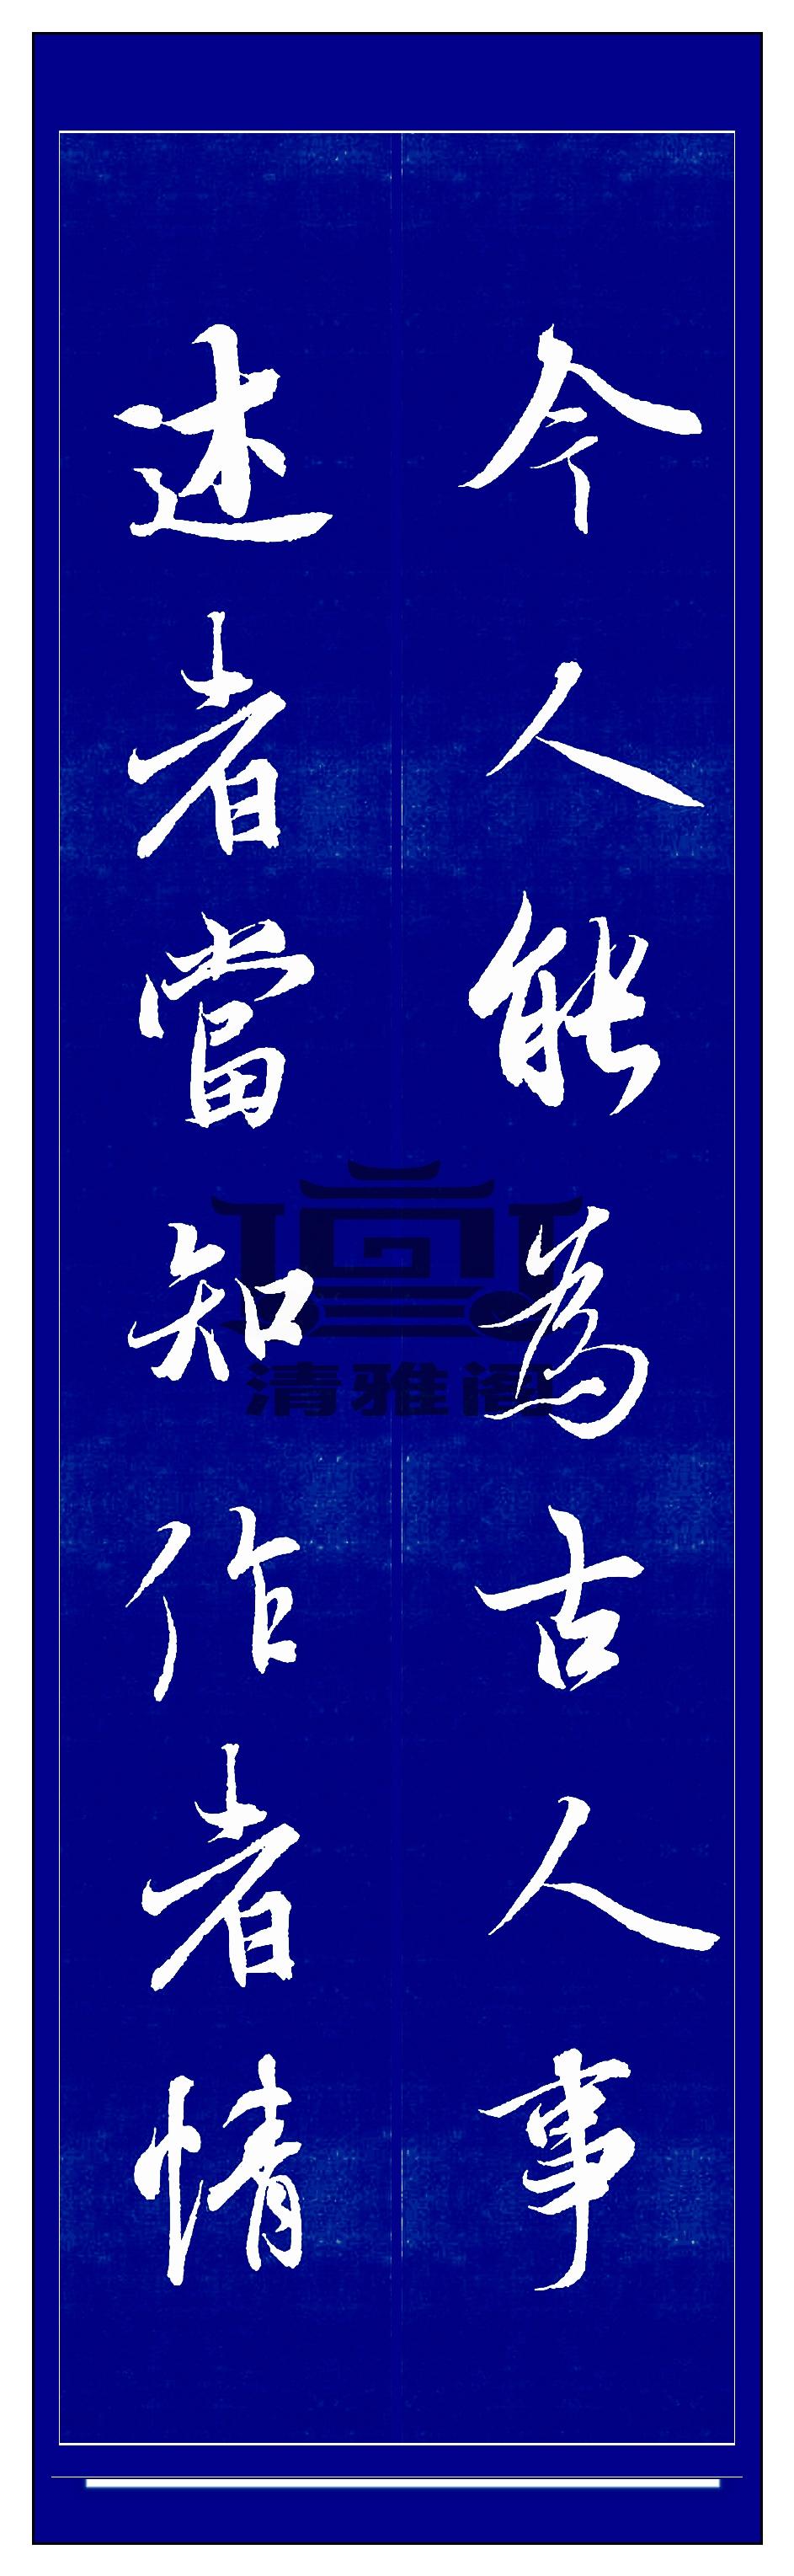 今人能為古人事
述者當知作者情
清雅阁